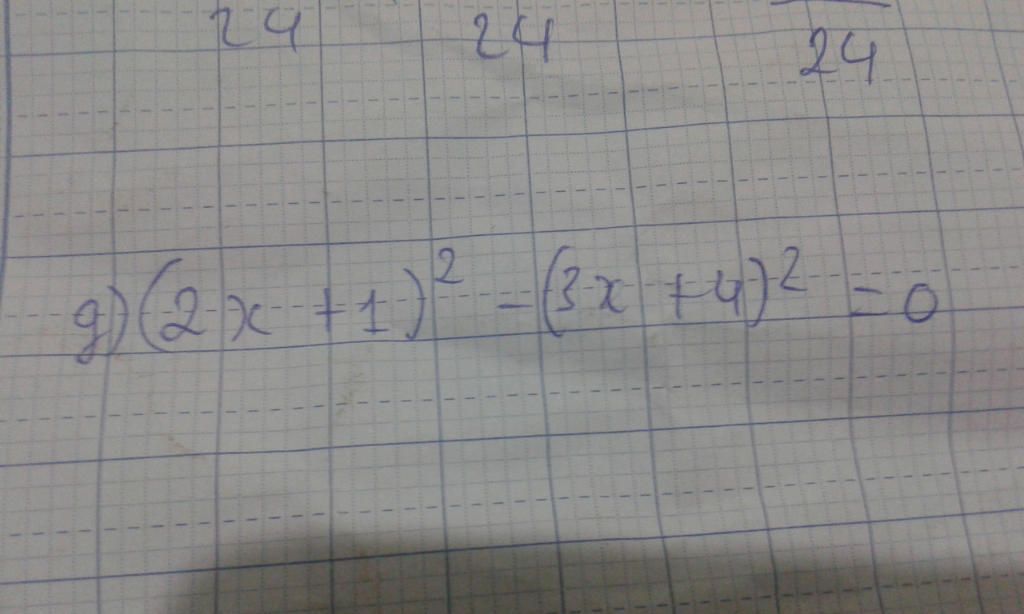 24 24 24
g) (2x + 1)² - (3x + 4)² = 0